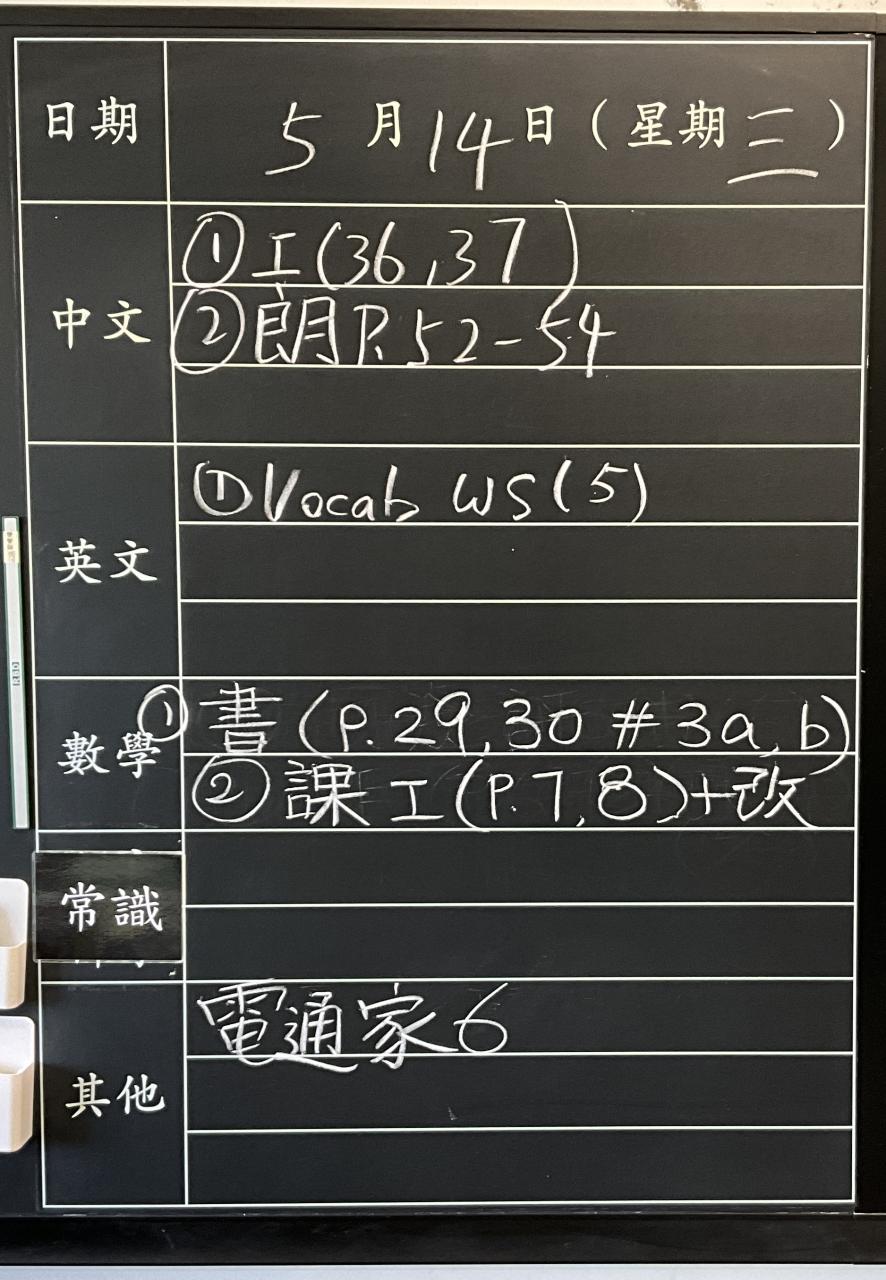 日期 5月14日（星期三）
中文 ①工(36,37)
②朗P.52-54
英文 ①Vocab WS(5)
數學 ①書(P.29,30 #3a,b)
②課工(P.7,8)+改
常識
其他 電通家6